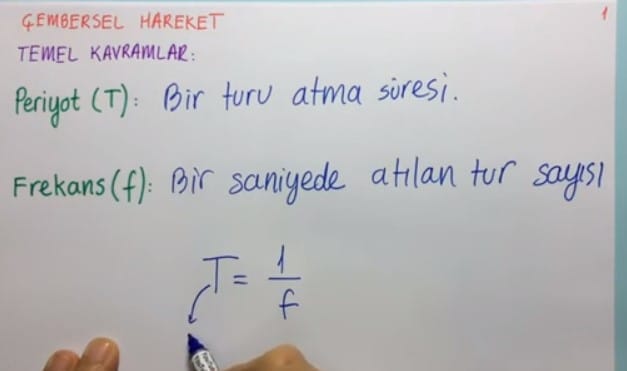 ÇEMBERSEL HAREKET 1
TEMEL KAVRAMLAR:
Periyot (T): Bir turu atma süresi.
Frekans (f): Bir saniyede atılan tur sayısı
T = 1/f